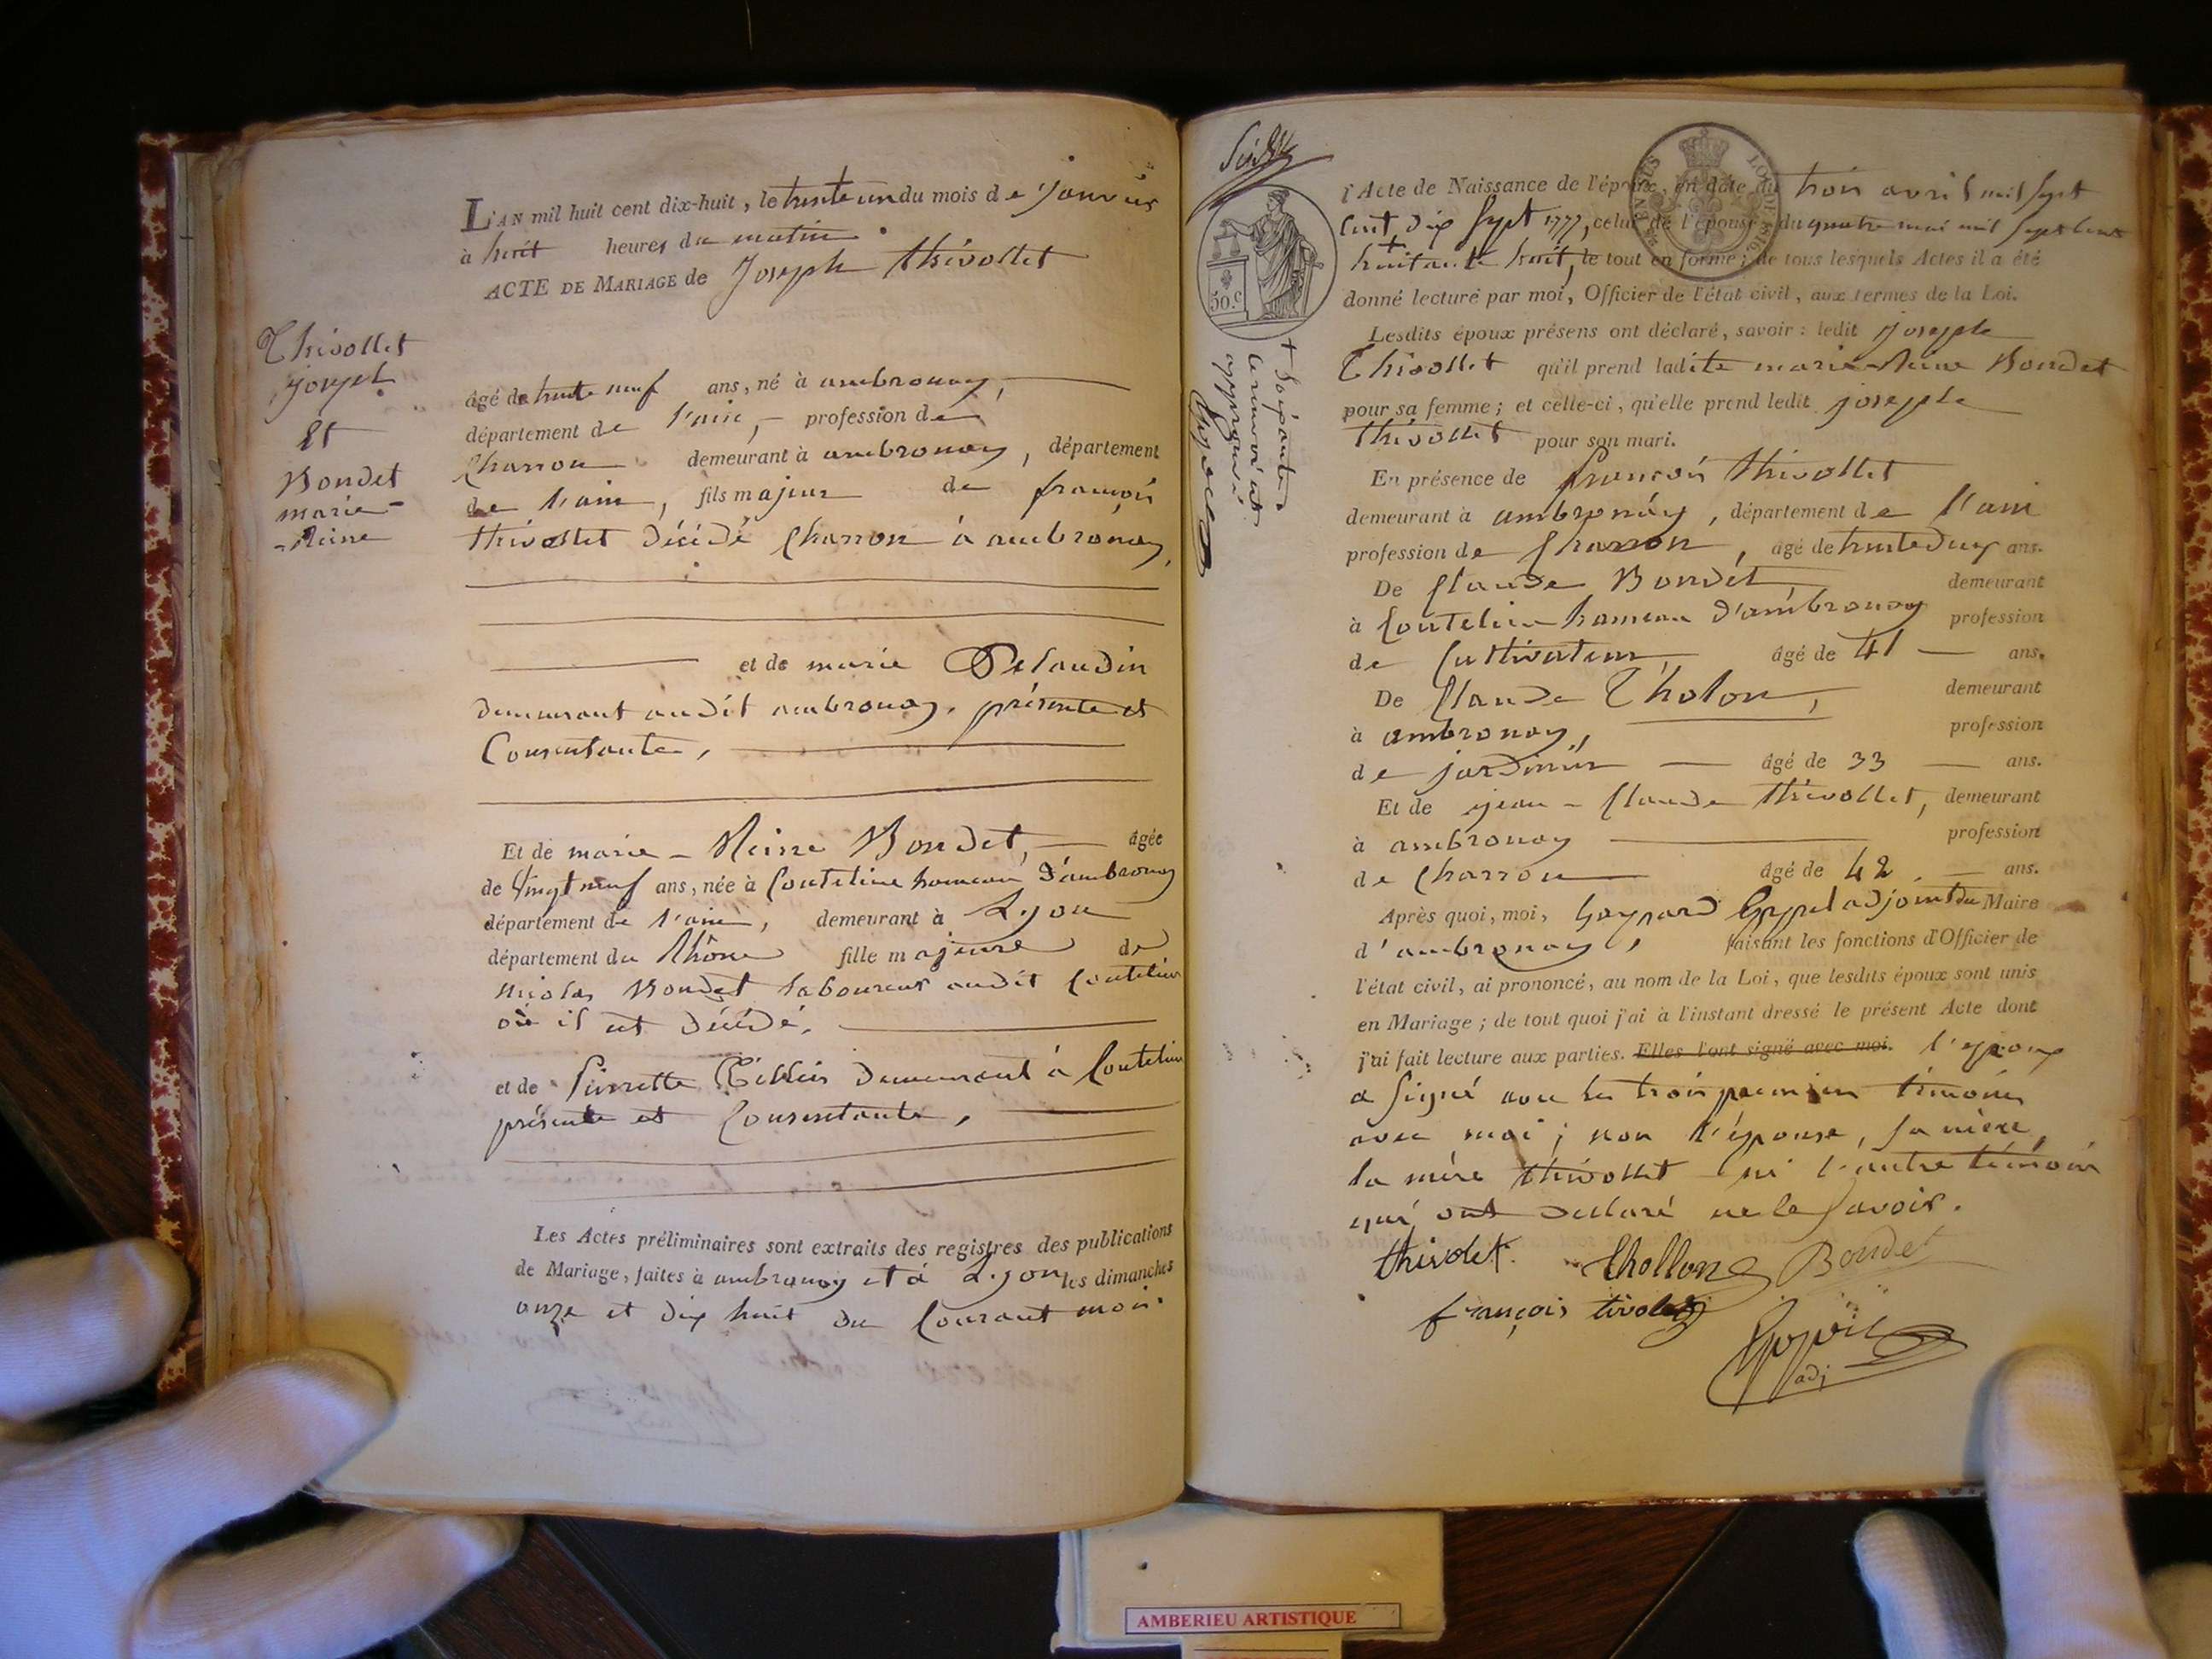 L'AN mil huit cent dix-huit, le trente un du mois de janvier
à huit heures du matin.
ACTE DE MARIAGE de Joseph thivollet
Thivollet
joseph
Et
Bondet
marie-
-Reine
âgé de trente neuf ans, né à ambronay,
département de l'ain, profession de
Charron demeurant à ambronay, département
de l'ain, fils majeur de françois
thivollet décédé Charron à ambronay,
et de marie
demeurant audit ambronay, présente et
Consentante,
Et de marie - Reine Bondet, âgée
de vingt neuf ans, née à Couteline hameau d'ambronay
département de l'ain, demeurant à Lyon
département du Rhône fille majeure de
nicolas Bondet laboureur audit Couteline
où il est décédé.
et de Pierrette demeurant à Couteline
présente et Consentante,
Les Actes préliminaires sont extraits des registres des publications
de Mariage, faites à ambronay et à Lyon les dimanches
onze et dix huit du Courant mois.
50.c
+ Soixante
le renvoi est
approuvé
l'Acte de Naissance de l'époux, en date du trois avril mil sept
Cent dix sept 1777, celui de l'épouse du quatre mai mil sept cent
huitante huit, le tout en forme; de tous lesquels Actes il a été
donné lecture par moi, Officier de l'état civil, aux termes de la Loi.
Lesdits époux présens ont déclaré, savoir: ledit joseph
Thivollet qu'il prend ladite marie Reine Bondet
pour sa femme; et celle-ci, qu'elle prend ledit joseph
thivollet pour son mari.
En présence de françois thivollet
demeurant à ambronay, département de l'ain
profession de Charron, âgé de trente deux ans.
De Claude Bondet, demeurant
à Couteline hameau d'ambronay profession
de Cultivateur, âgé de 41 ans.
De Claude Tholon, demeurant
à ambronay, profession
de jardinier âgé de 33 ans.
Et de jean - Claude thivollet, demeurant
à ambronay profession
de Charron âgé de 42 ans.
Après quoi, moi, Gaspard adjoint du Maire
d'ambronay, faisant les fonctions d'Officier de
l'état civil, ai prononcé, au nom de la Loi, que lesdits époux sont unis
en Mariage; de tout quoi j'ai à l'instant dressé le présent Acte dont
j'ai fait lecture aux parties. Elles l'ont signé avec moi. l'epoux
a signé avec les trois premiers témoins
avec moi; non l'épouse, sa mère,
la mère thivollet ni l'autre témoin
qui ont declaré ne le savoir.
thivolet. thollon Bondet
françois tivolet
adj
AMBERIEU ARTISTIQUE